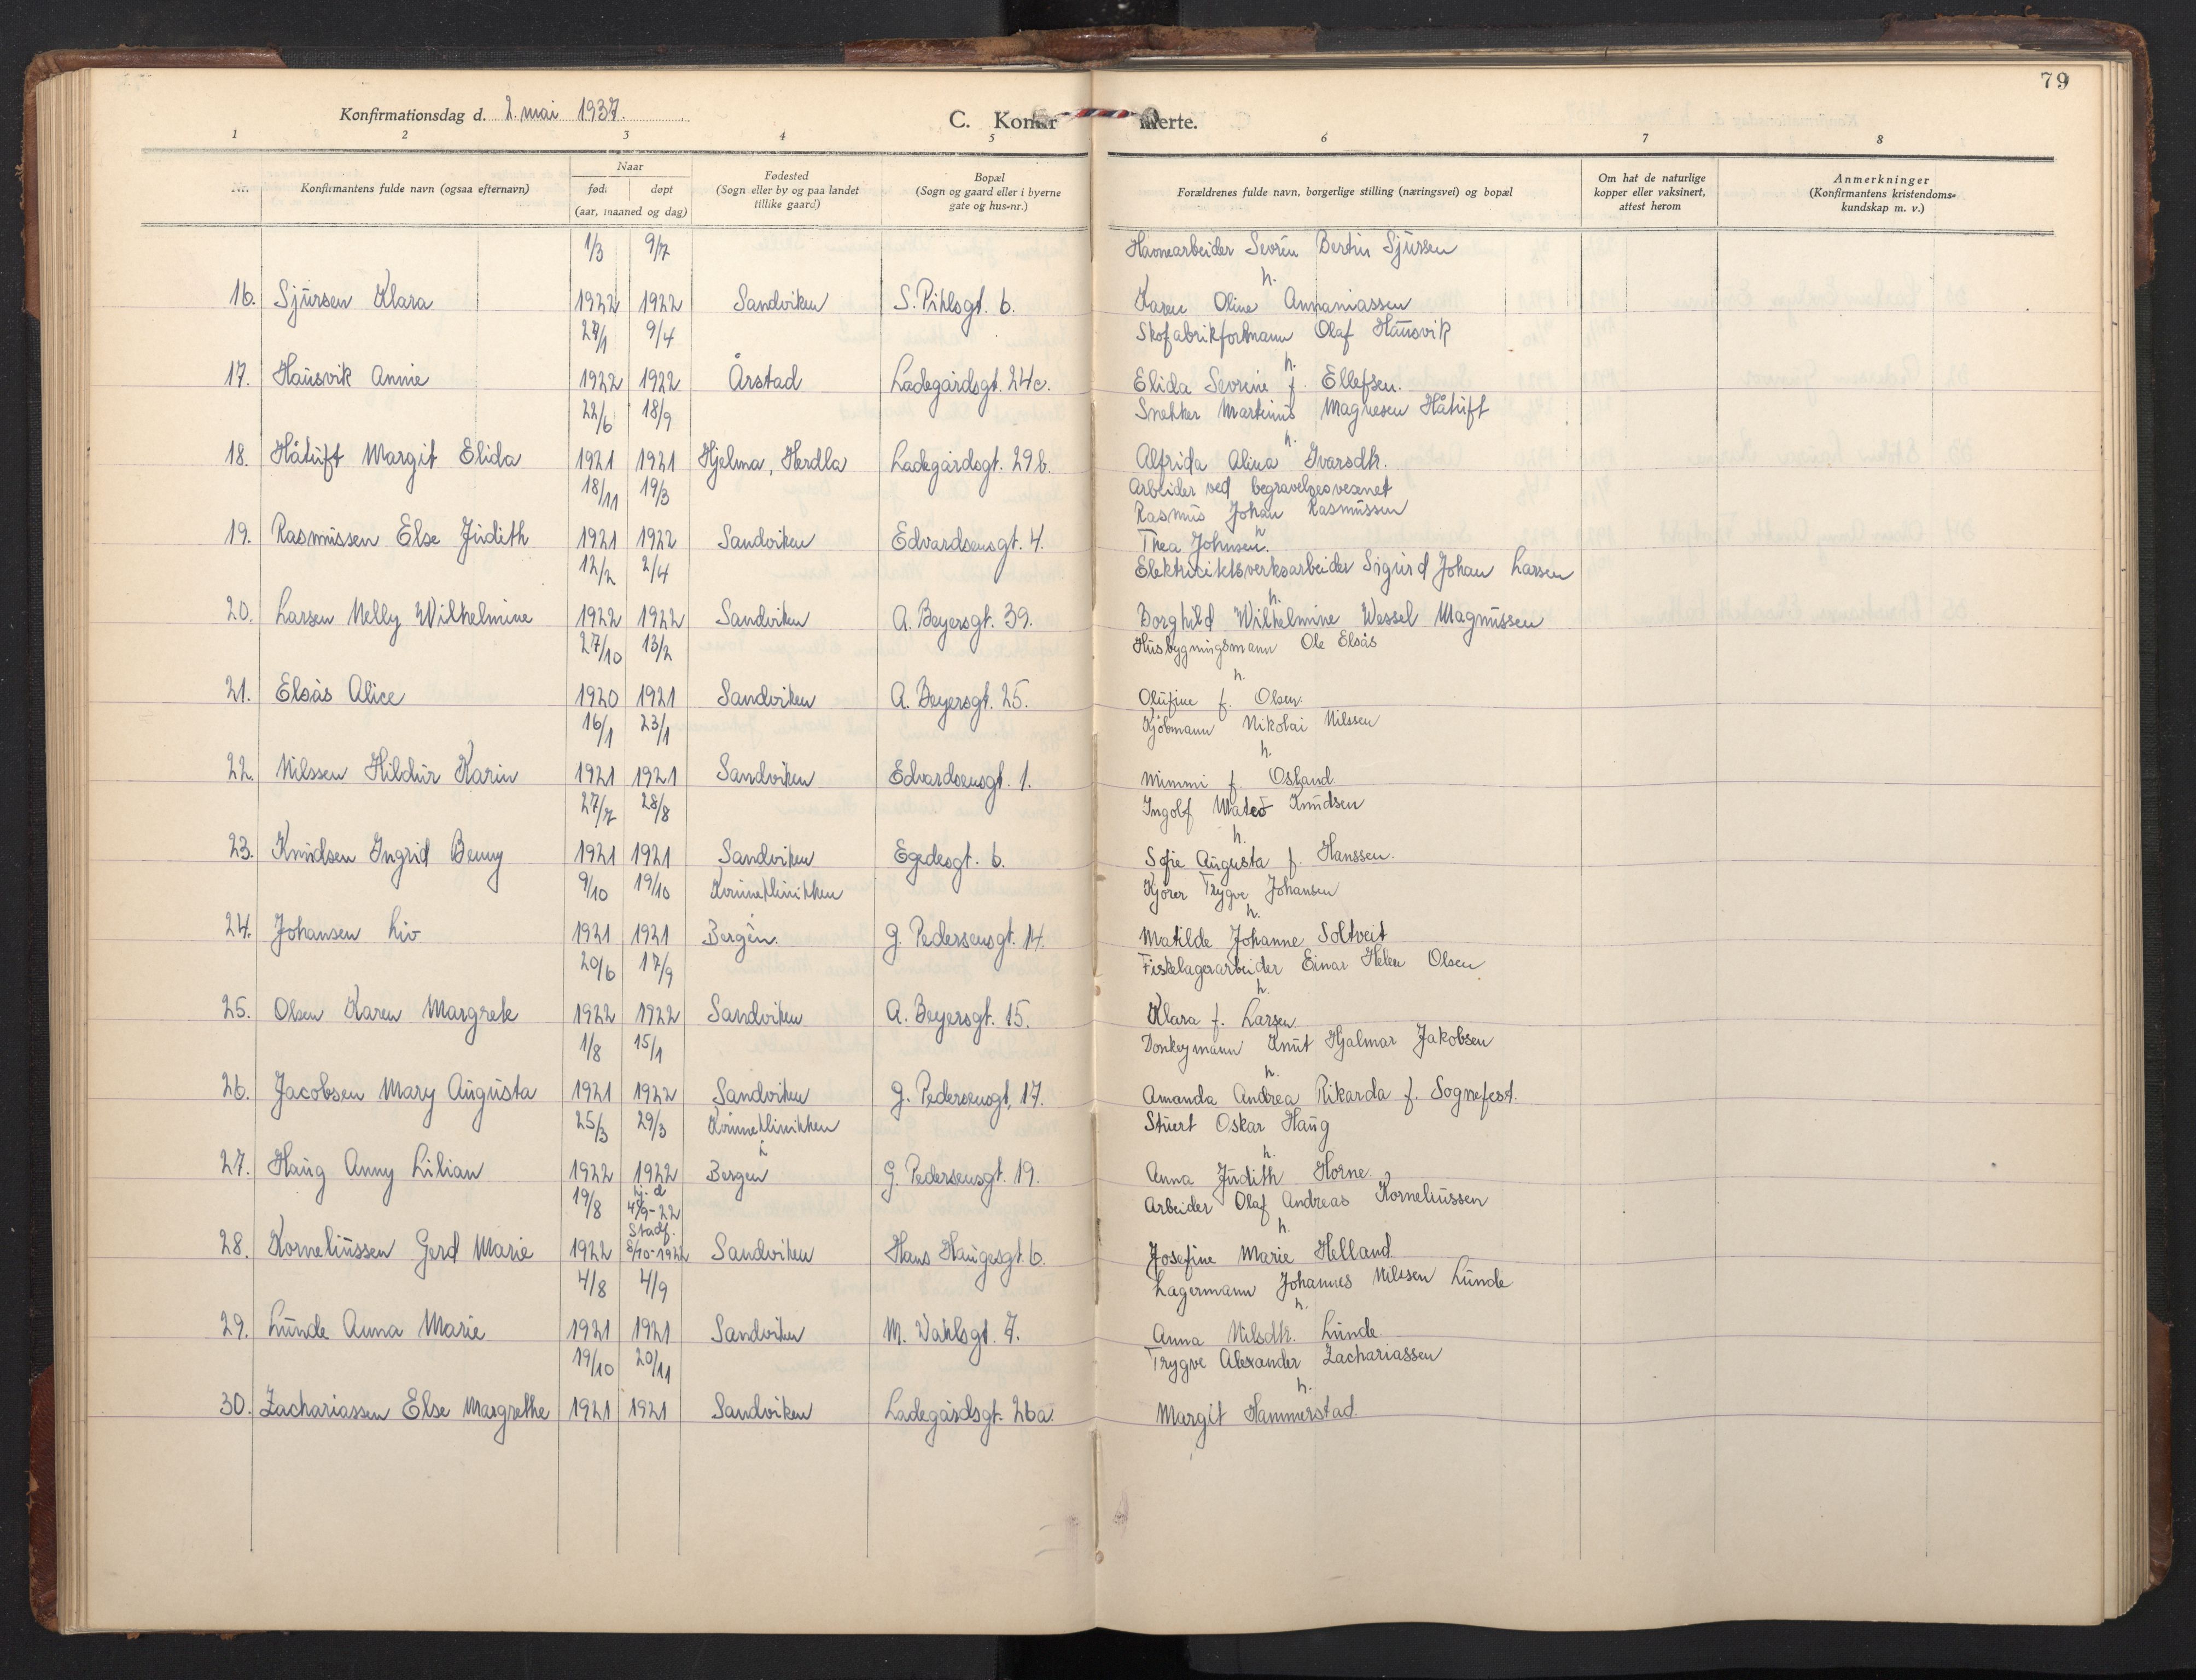 79
Konfirmationsdag d. 2. mai 1937.
C. Kon erte.
1 2 3 4 5 6 7 8
Nr.
Konfirmantens fulde navn (ogsaa efternavn)
Naar
født døpt
(aar, maaned og dag)
Fødested
(Sogn eller by og paa landet
tillike gaard)
Bopæl
(Sogn og gaard eller i byerne
gate og hus-nr.)
Forældrenes fulde navn, borgerlige stilling (næringsvei) og bopæl
Om hat de naturlige
kopper eller vaksinert,
attest herom
Anmerkninger
(Konfirmantens kristendoms-
kundskap m. v.)
1/3 9/7 Havnearbeider Sevrin Bertin Sjursen
h.
16. Sjursen Klara 1922 1922 Sandviken S. Pihlsgt. 6. Karen Oline Annaniassen
27/1 9/4 Skofabrikformann Olaf Hausvik
h.
17. Hausvik Annie 1922 1922 Årstad Ladegårdsgt. 24c. Elida Sevrine f. Ellefsen.
22/6 18/9 Snekker Martinus Magnesen Håtuft
h.
18. Håtuft Margit Elida 1921 1921 Hjelma, Herdla Ladegårdsgt. 29b. Alfrida Alina Ivarsdtr.
18/11 19/3 Arbeider ved begravelsesvesenet
Rasmus Johan Rasmussen
h
19. Rasmussen Else Judith 1921 1922 Sandviken Edvardsensgt. 4. Thea Johnsen.
12/2 2/4 Elektricitetsverksarbeider Sigurd Johan Larsen
h.
20. Larsen Nelly Wilhelmine 1922 1922 Sandviken A. Beyersgt. 39. Borghild Wilhelmine Wessel Magnussen
27/10 13/2 Husbygningsmann Ole Elsås
h.
21. Elsås Alice 1920 1921 Sandviken A. Beyersgt. 25. Olufine f. Olsen.
16/1 23/1 Kjöbmann Nikolai Nilssen
h.
22. Nilssen Hildur Karin 1921 1921 Sandviken Edvardsensgt. 1. Mimmi f. Osland
27/7 28/8 Ingolf Knudsen
h.
23. Knudsen Ingrid Benny 1921 1921 Sandviken Egedesgt. 6. Sofie Augusta f. Hanssen.
9/10 19/10 Kvinneklinikken Kjörer Trygve Johansen
h.
24. Johansen Liv 1921 1921 Bergen. G. Pedersensgt. 14. Matilde Johanne Soltveit
20/6 17/9 Fiskelagerarbeider Einar Helen Olsen
h.
25. Olsen Karen Margrete 1922 1922 Sandviken A. Beyersgt. 15. Klara f. Larsen
1/8 15/1 Donkeymann Knut Hjalmar Jakobsen
h.
26. Jacobsen Mary Augusta 1921 1922 Sandviken G. Pedersensgt. 17. Amanda Andrea Rikarda f. Sognefest.
25/3 29/3 Kvinneklinikken Stuert Oskar Haug
h.
27. Haug Anny Lilian 1922 1922 Bergen G. Pedersensgt. 19. Anna Judith Horne
19/8 hj. d. 4/9-22 Arbeider Olaf Andreas Korneliussen
Stadf. h.
28. Korneliussen Gerd Marie 1922 8/10-1922 Sandviken Hans Haugesgt. 6. Josefine Marie Helland
4/8 4/9 Lagermann Johannes Nilssen Lunde
h.
29. Lunde Anna Marie 1921 1921 Sandviken M. Wahlsgt. 7. Anna Nilsdtr. Lunde
19/10 20/11 Trygve Alexander Zachariassen
h.
30. Zachariassen Else Margrethe 1921 1921 Sandviken Ladegårdsgt. 26a. Margit Hammerstad